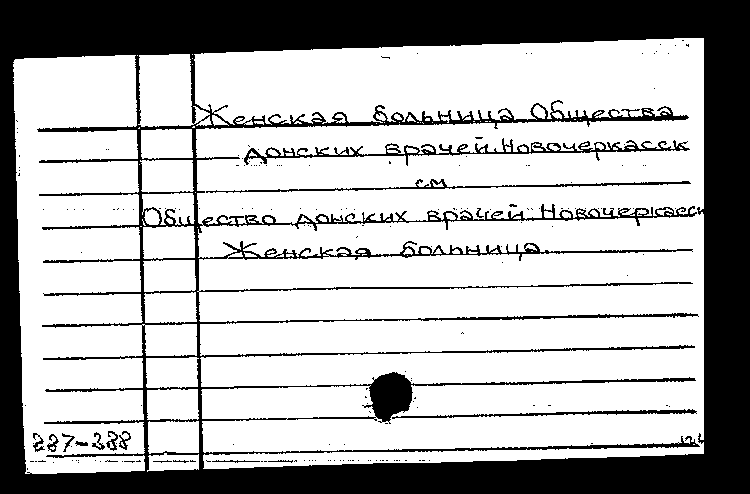 Женская больница Общества
донских врачей. Новочеркасск
см
Общество донских врачей Новочеркасск
Женская больница.